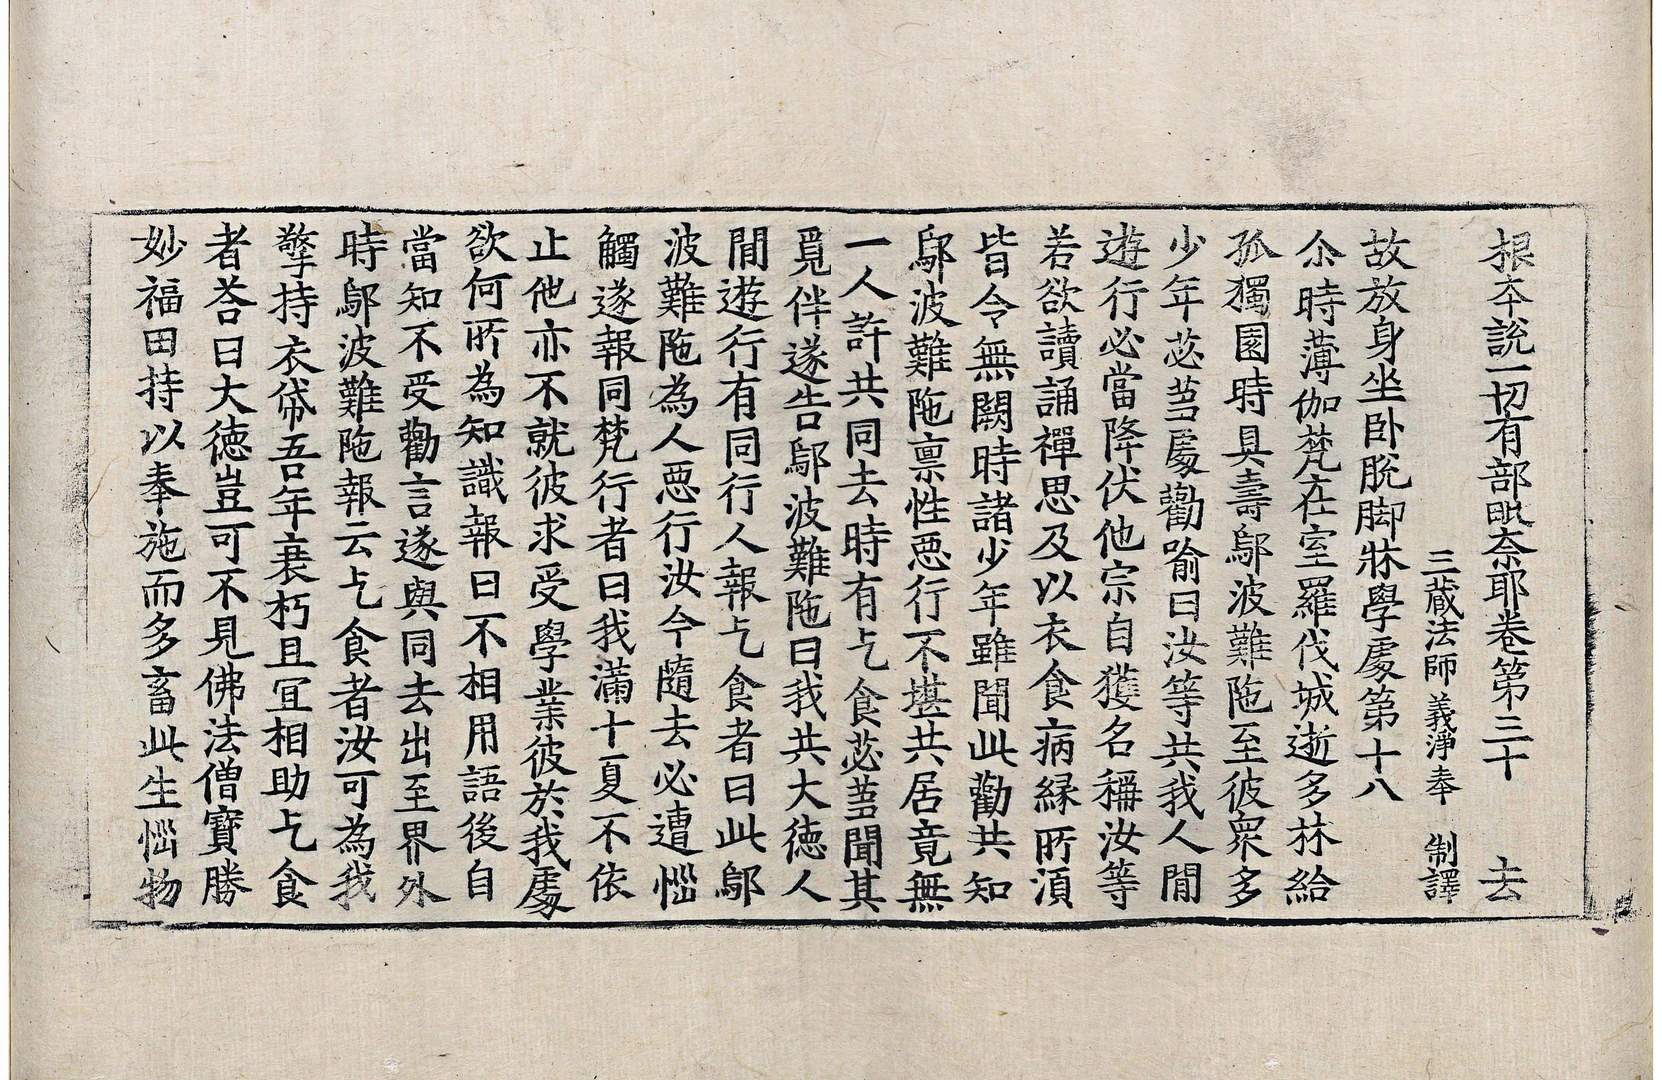 根夲說一切有部毗奈耶卷第三十 去
三藏法師義淨奉 制譯
故放身坐卧脫脚牀學䖏第十八
尒時薄伽梵在室羅伐城逝多林給
孤獨園時具壽鄔波難陁至彼衆多
少年苾芻䖏勸喻曰汝等共我人閒
遊行必當降伏他宗自獲名稱汝等
若欲讀誦禪思及以衣食病縁所湏
皆令無闕時諸少年雖聞此勸共知
鄔波難陁禀性惡行不堪共居竟無
一人許共同去時有乞食苾芻聞其
覓伴遂告鄔波難陁曰我共大徳人
閒遊行有同行人報乞食者曰此鄔
波難陁為人惡行汝今隨去必遭惱
觸遂報同梵行者曰我滿十夏不依
止他亦不就彼求受學業彼於我䖏
欲何所為知識報曰不相用語後自
當知不受勸言遂與同去出至界外
時鄔波難陁報云乞食者汝可為我
擎持衣帒吾年衰朽且冝相助乞食
者荅曰大徳豈可不見佛法僧寶勝
妙福田持以奉施而多畜此生惱物